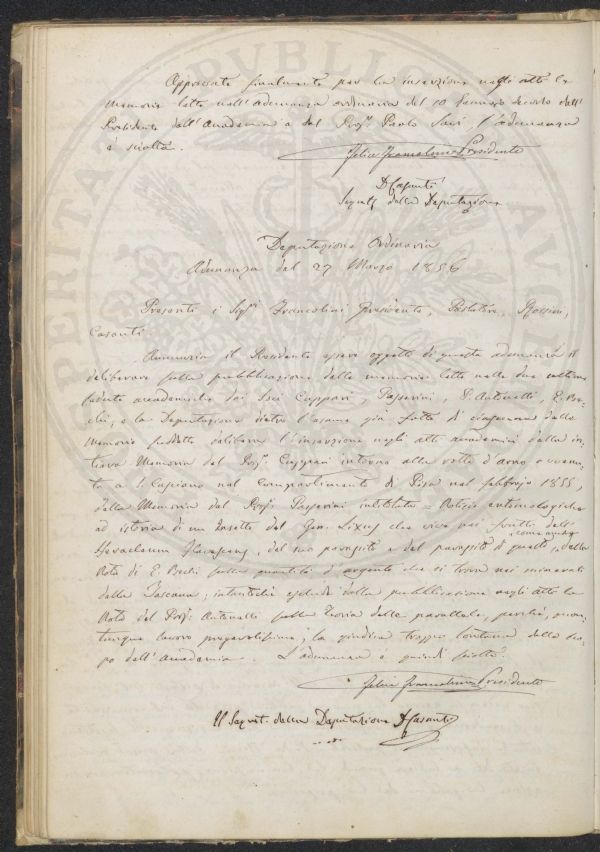 Approvata finalmente per la inserzione negli atti la
Memoria letta nell'adunanza ordinaria del 10 Gennajo decorso dall'
Presidente dell'Accademia e dal Prof. Paolo Savi, l'adunanza
è sciolta.
Felice Francolini Presidente
D Casanti
Segret della Deputazione
Deputazione Ordinaria
Adunanza del 27 Marzo 1856
Presenti i Sigri Francolini Presidente, Rossini,
Casanti
Annunzia il Presidente essere oggetto di questa adunanza il
deliberare sulla pubblicazione delle memorie lette nelle due ultime
sedute accademiche dai Soci Cuppari, Passerini, P. Antonelli, E. Be-
chi, e la Deputazione dietro l'esame già fatto di ciascuna delle
Memorie suddette delibera l'inserzione negli atti accademici della in-
tiera Memoria del Prof. Cuppari intorno alla rotta d'arno avvenu-
ta a S. Casciano nel Compartimento di Pisa nel febbrajo 1855,
della Memoria del Prof. Passerini intitolata = Notizie entomologiche
ad istoria di un Insetto del Gen. Lixus che vive nei frutti dell'
Heracleum, del suo parassito e del parassito di questo, della
come anche
Nota di E. Bechi sulla quantità d'argento che si trova nei minerali
della Toscana; intantochè esclude dalla pubblicazione negli atti la
Nota del Prof. Antonelli sulla Teoria delle parallele, perchè, quan-
tunque lavoro pregevolissimo, la giudica troppo lontana dello sco-
po dell'Accademia. L'adunanza è quindi sciolta.
Felice Francolini Presidente
Il Segret. della Deputazione D Casanti